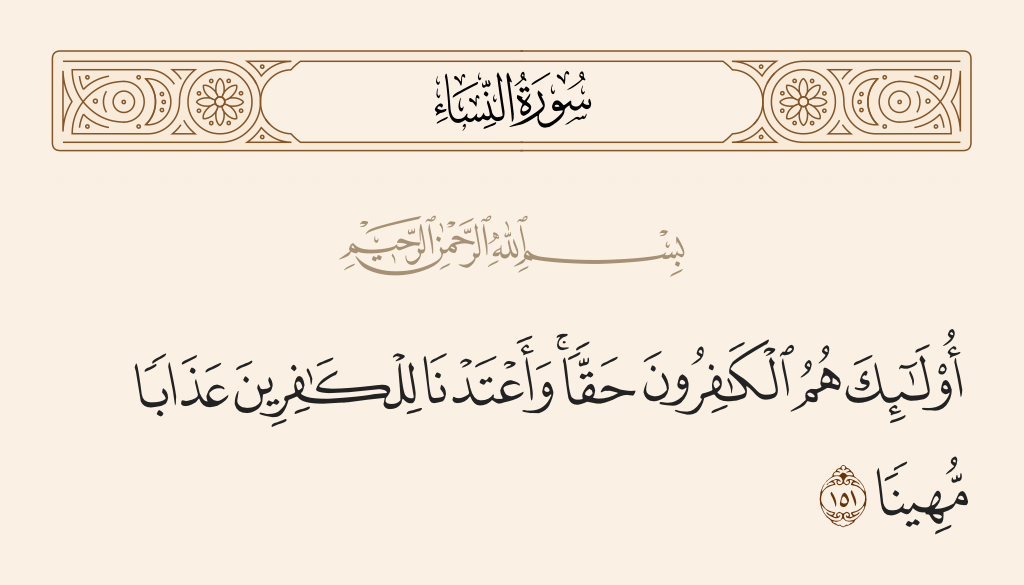 سُورَةُ النِّسَاءِ
بِسْمِ ٱللَّهِ ٱلرَّحْمَٰنِ ٱلرَّحِيمِ
أُو۟لَٰٓئِكَ هُمُ ٱلْكَٰفِرُونَ حَقًّا ۚ وَأَعْتَدْنَا لِلْكَٰفِرِينَ عَذَابًا
مُّهِينًا ١٥١